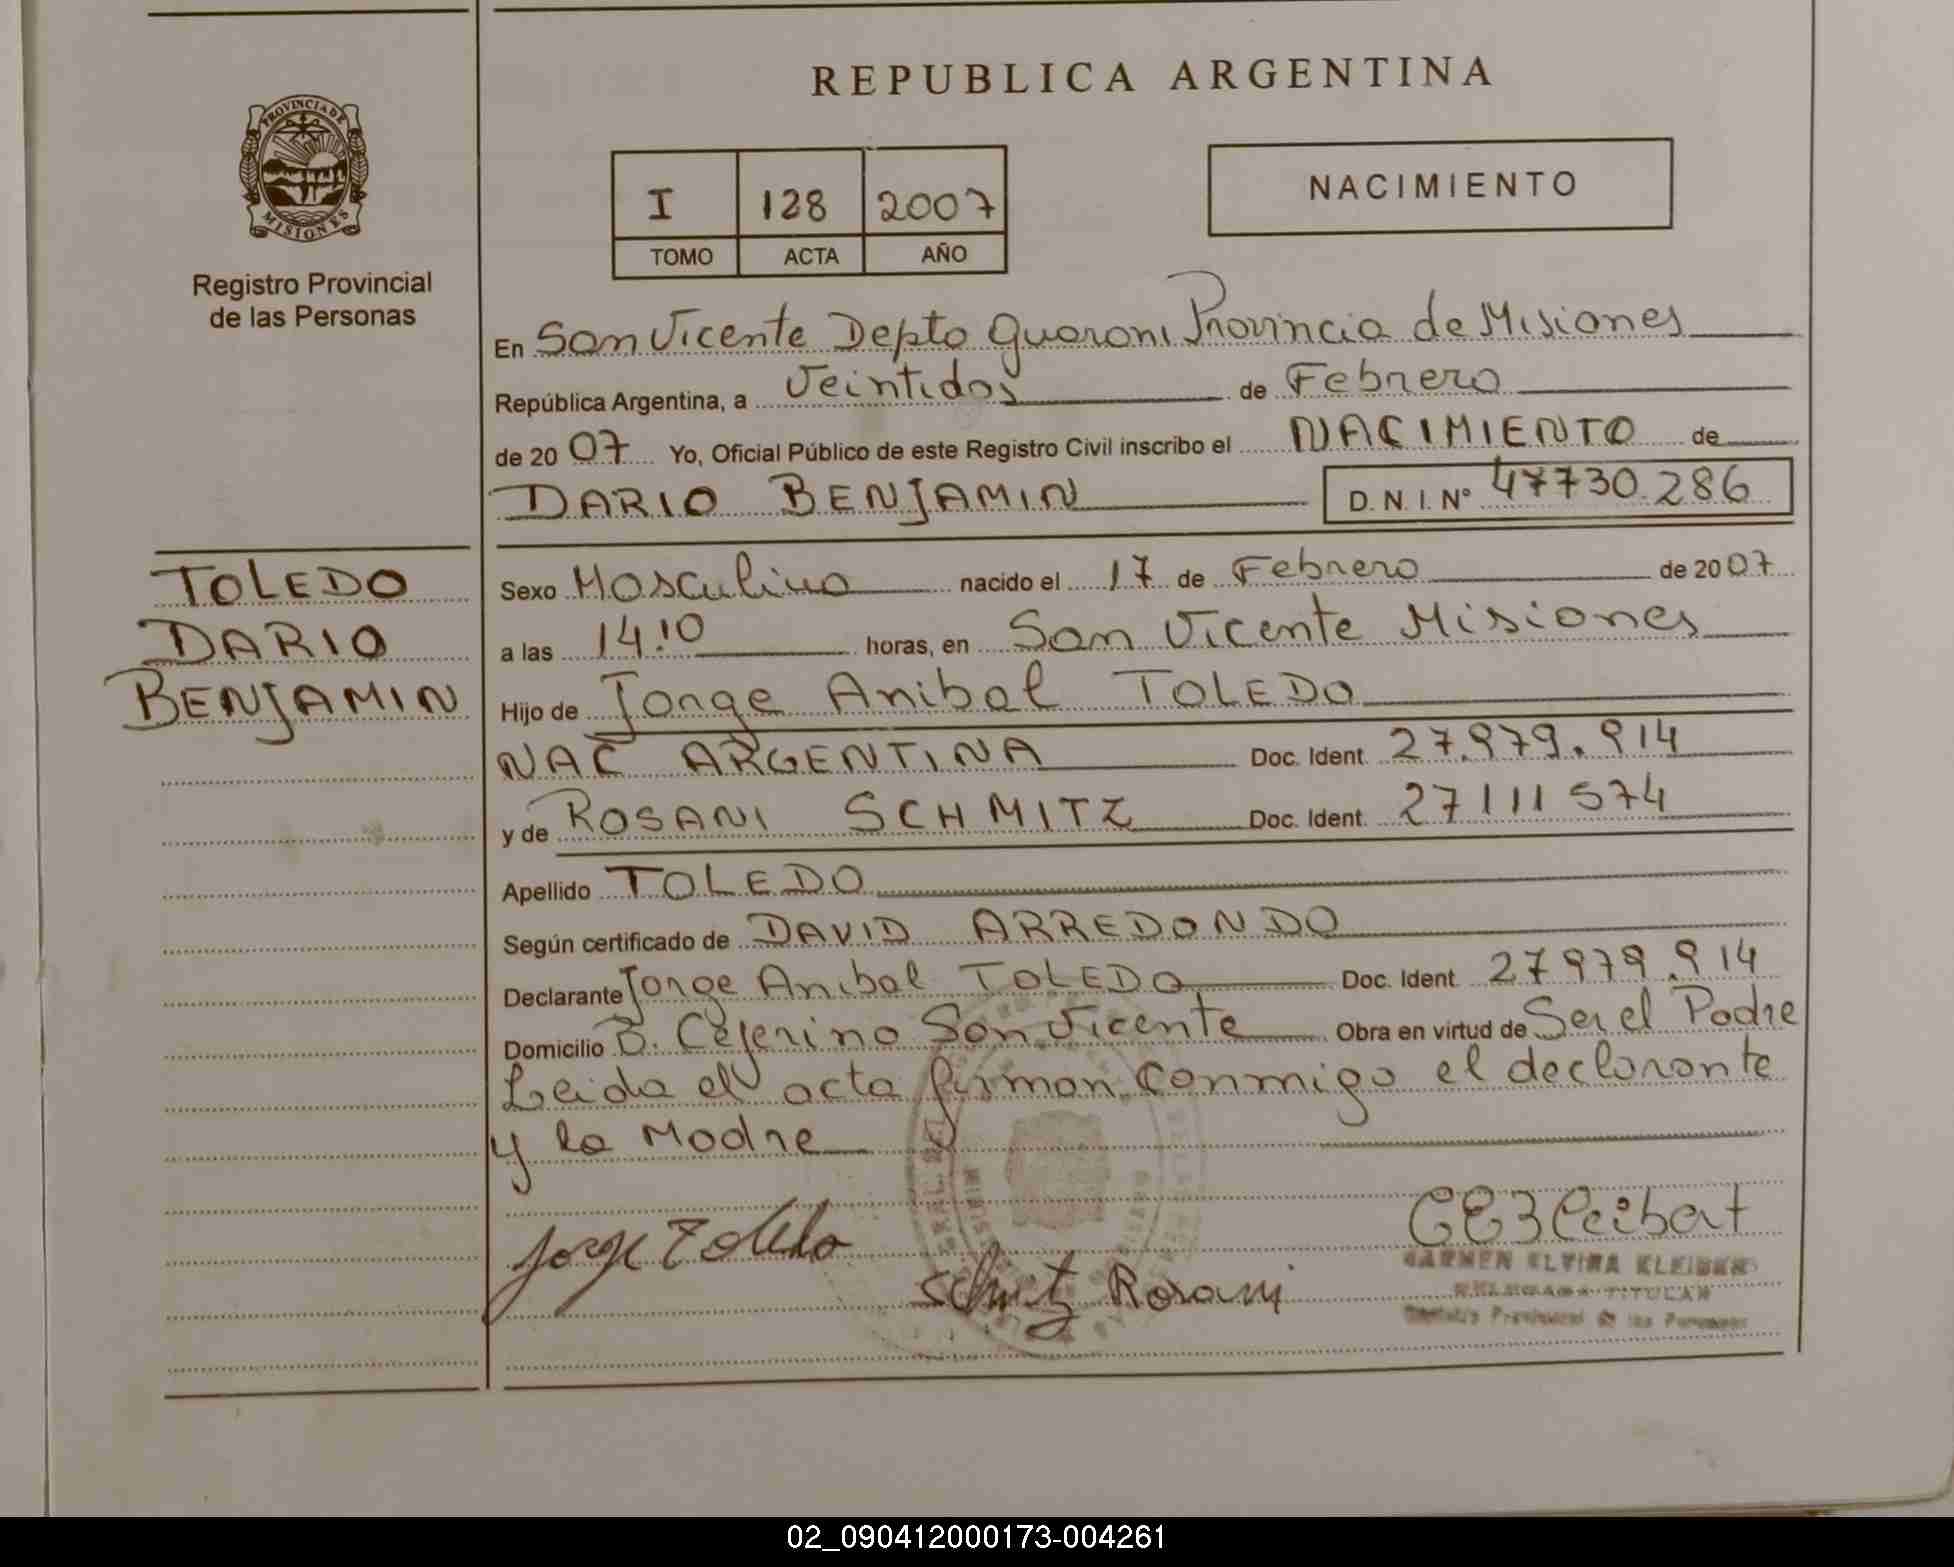 REPUBLICA ARGENTINA
PROVINCIA DE
MISIONES
Registro Provincial
de las Personas
I 128 2007
TOMO ACTA AÑO
NACIMIENTO
En San Vicente Depto Guarani Provincia de Misiones
República Argentina, a Veintidos de Febrero
de 2007 Yo, Oficial Público de este Registro Civil inscribo el NACIMIENTO de
DARIO BENJAMIN D. N. I. Nº 47730.286
TOLEDO
DARIO
BENJAMIN
Sexo Masculino nacido el 17 de Febrero de 2007
a las 14:10 horas, en San Vicente Misiones
Hijo de Jorge Anibal TOLEDO
NAC ARGENTINA Doc. Ident. 27.979.914
y de ROSANI SCHMITZ Doc. Ident. 27111574
Apellido TOLEDO
Según certificado de DAVID ARREDONDO
Declarante Jorge Anibal TOLEDO Doc. Ident. 27979.914
Domicilio B. Ceferino San Vicente Obra en virtud de Ser el Padre
Leida el acta firman conmigo el declarante
y la Madre
Jorge Toledo
Schmitz Rosani
CARMEN ELVIRA
DELEGADA TITULAR
Registro Provincial de las Personas
02_090412000173-004261